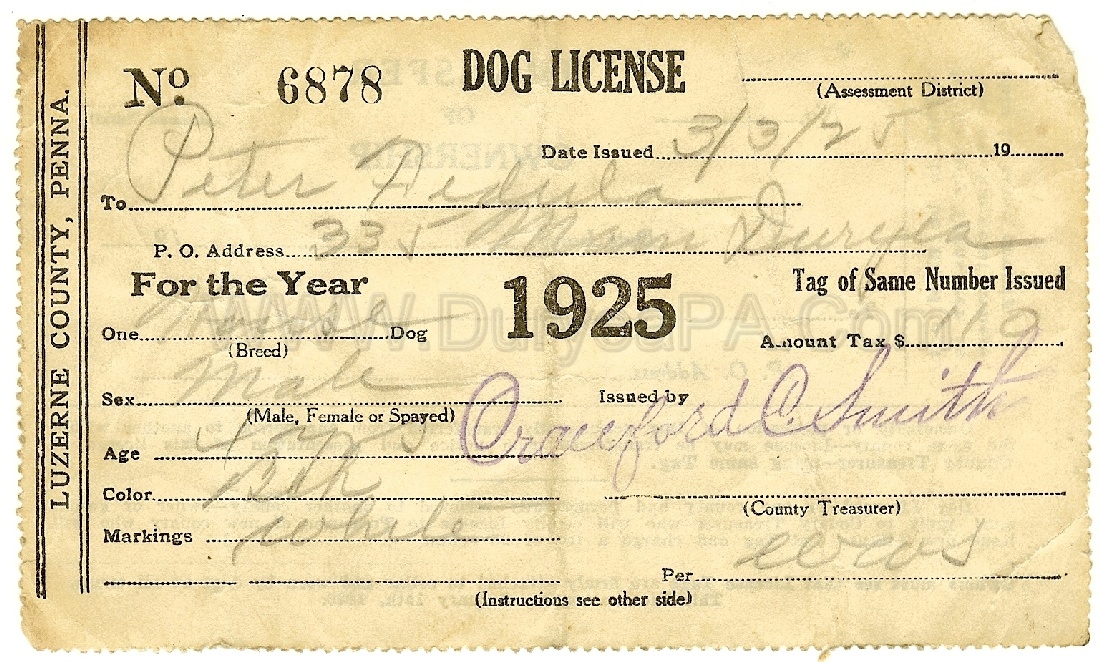 LUZERNE COUNTY, PENNA.
No. 6878 DOG LICENSE
(Assessment District)
Date Issued 3/3/25 19
To Peter
P. O. Address 335 Main Duryea
For the Year 1925 Tag of Same Number Issued
www.DuryeaPA.com
One Dog
(Breed)
Amount Tax $ 110
Sex Male
(Male, Female or Spayed)
Issued by Crawford C. Smith
Age 4 yrs
Color Blk
(County Treasurer)
Markings white
Per
(Instructions see other side)